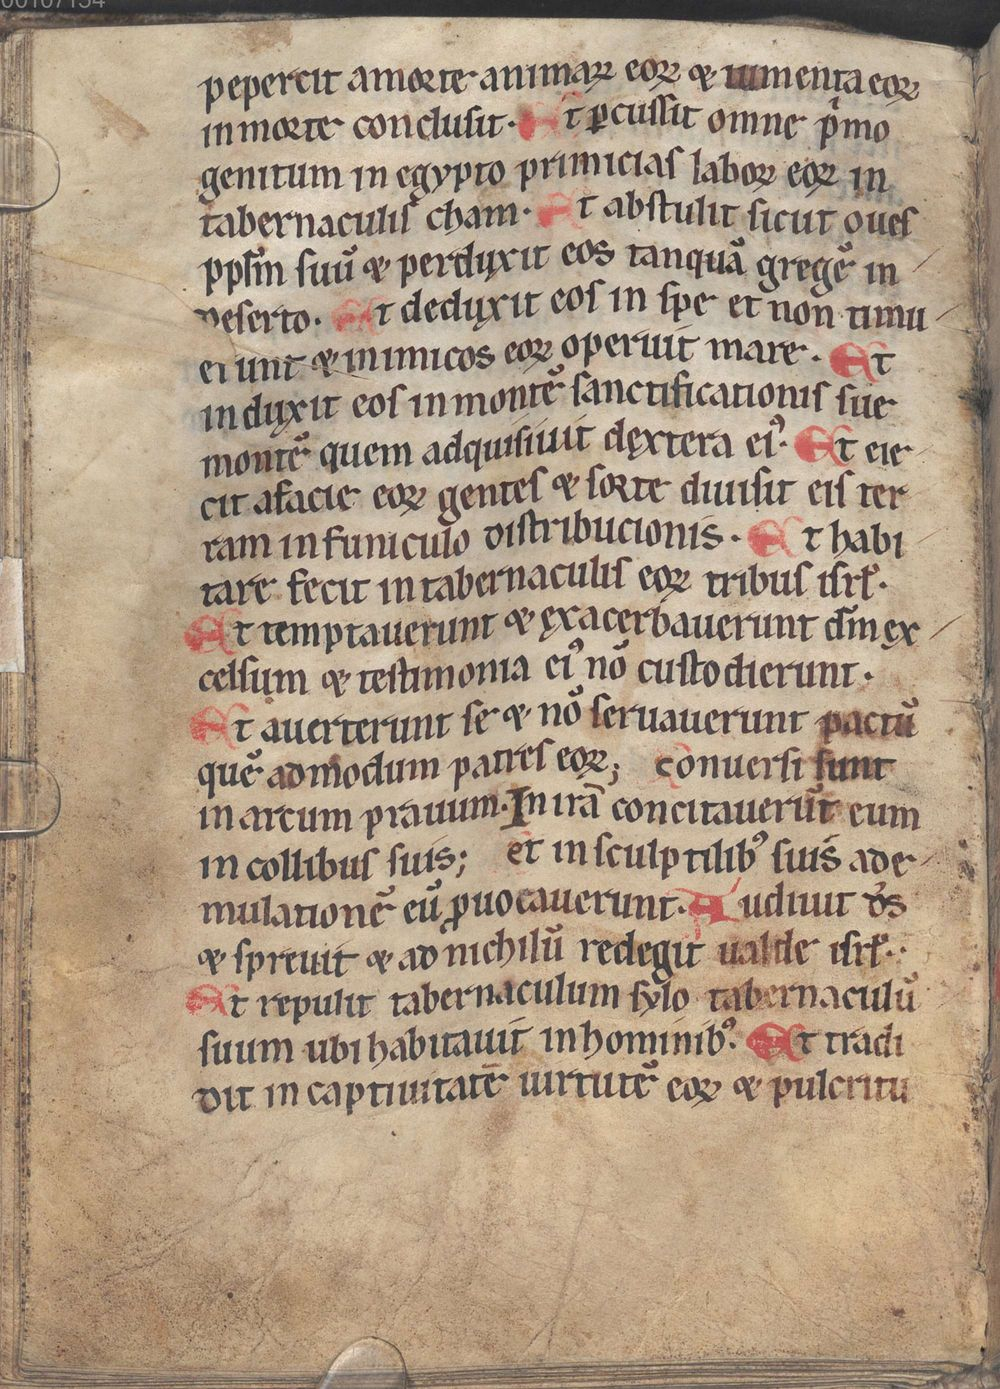 00107154
pepercit amorte animaꝝ eoꝝ ⁊ iumenta eoꝝ
in morte conclusit. Et ꝑcussit omne pͥmo
genitum in egypto primicias laboꝝ eoꝝ in
tabernaculis cham. Et abstulit sicut oues
ppłm suū ⁊ perduxit eos tanquā gregē in
deserto. Et deduxit eos in spe et non timu
erunt ⁊ inimicos eoꝝ operuit mare. Et
induxit eos in montē sanctificationis sue
montē quem adquisiuit dextera eiꝰ. Et eie
cit afacie eoꝝ gentes ⁊ sorte diuisit eis ter
ram in funiculo distribucionis. Et habi
tare fecit in tabernaculis eoꝝ tribus isrł.
Et temptauerunt ⁊ exacerbauerunt dm̄ ex
celsum ⁊ testimonia eiꝰ nō custodierunt.
Et auerterunt se ⁊ nō seruauerunt pactū
quē admodum patres eoꝝ; conuersi sunt
in arcum prauum. In irā concitauerūt eum
in collibus suis; et in sculptilibꝰ suis ad e
mulationē eū ꝓuocauerunt. Audiuit ds̄
⁊ spreuit ⁊ ad nichilū redegit ualde isrł.
Et repulit tabernaculum sylo tabernaculū
suum ubi habitauit in hominibꝰ. Et tradi
dit in captiuitatē uirtutē eoꝝ ⁊ pulcritu